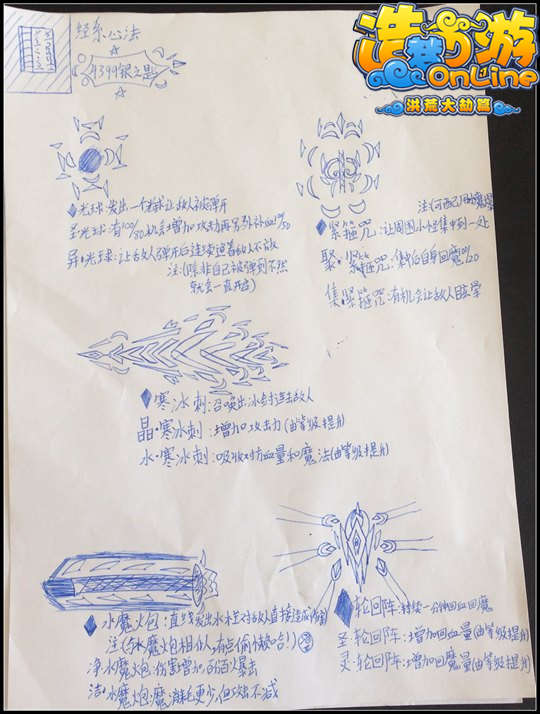 造梦西游
OnLine
洪荒大劫篇
经系心法
4399银之
光球:发出一个光球让敌人被弹开
圣光球:有100/50机会增加攻功再另外补血50
异光球:让敌人弹开后连续追着敌人不放
法:(除非自己被弹到不然
就会一直
紧箍咒:让周围小怪集中到一处
聚紧箍咒:使后自单回魔
集紧箍咒:有机会让敌人眩晕
寒冰刺:召唤出冰刺连击敌人
晶·寒冰刺:增加攻击力(由等级提升)
水·寒冰刺:吸收对方血量和魔法(由等级提升)
水魔火包:直线发出水柱对敌人直接造成伤害
注(与水魔炮相似,有点偷懒哈!)
净水魔火炮:伤害增加
洁·水魔炮:魔消耗更少但攻击不减
轮回阵:持续一分钟回血回魔
圣·轮回阵:增加回血量(由等级提升)
灵·轮回阵:增加回魔量(由等级提升)